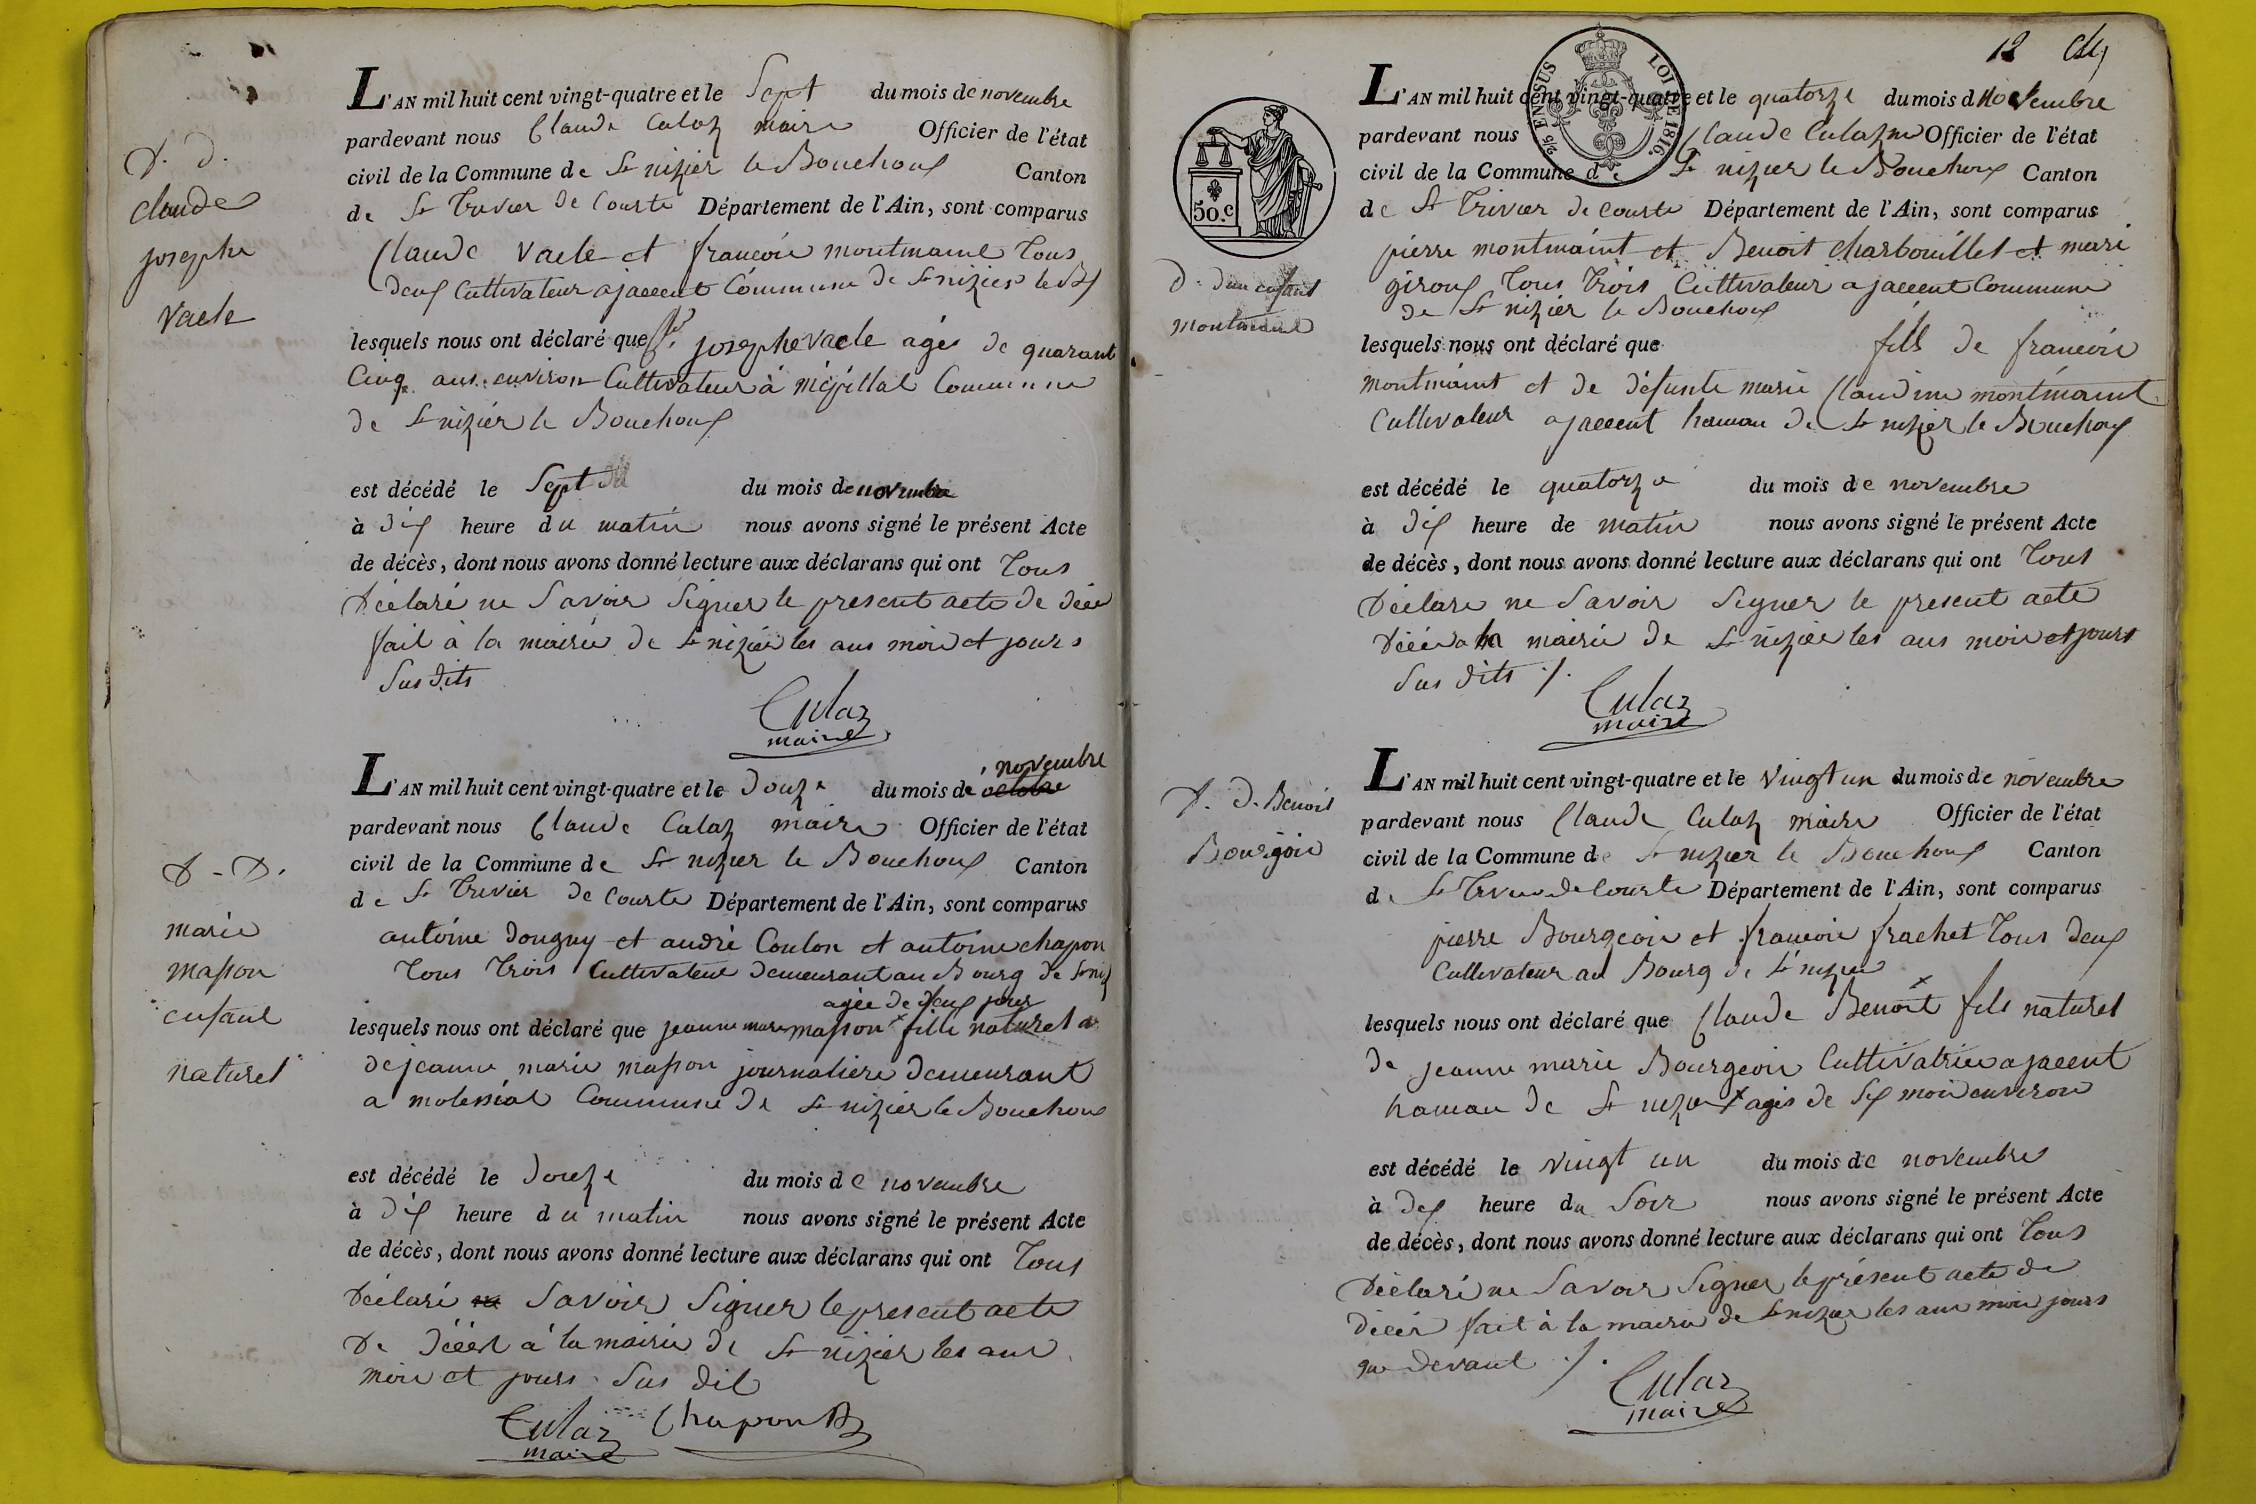 D. D.
claude
josephe
vacle
L'AN mil huit cent vingt-quatre et le Sept du mois de novembre
pardevant nous Claude Culaz maire Officier de l'état
civil de la Commune de St nizier le Bouchoux Canton
de St Trivier de Courte Département de l'Ain, sont comparus
Claude vacle et francois montmaint Tous
deux Cultivateur a jaccent Commune de St nizier le
lesquels nous ont déclaré que josephe vacle agés de quarant
Cinq ans environ Cultivateur à mépillat Commune
de St nizier le Bouchoux
est décédé le Sept du mois de novembre
à dix heure du matin nous avons signé le présent Acte
de décès, dont nous avons donné lecture aux déclarans qui ont Tous
Déclaré ne Savoir Signer le present acte de décè
fait à la mairie de St nizier les ans mois et jours
Sus dits
Culaz
maire
D - D.
marie
masson
enfant
naturel
L'AN mil huit cent vingt-quatre et le douze du mois de octobre novembre
pardevant nous Claude Culaz maire Officier de l'état
civil de la Commune de St nizier le Bouchoux Canton
de St Trivier de Courte Département de l'Ain, sont comparus
antoine dougny et andré Coulon et antoine chapon
Tous Trois Cultivateur demeurant au Bourg de St niz
agée de deux jours
lesquels nous ont déclaré que jeanne marie masson fille naturel
de jeanne marie masson journaliere demeurant
a Commune de St nizier le Bouchoux
est décédé le douze du mois de novembre
à dix heure du matin nous avons signé le présent Acte
de décès, dont nous avons donné lecture aux déclarans qui ont Tous
Déclaré ne Savoir Signer le present acte
De décès à la mairie de St nizier les ans
mois et jours Sus dit
Culaz Chapon
maire
12
2/5 EN SUS LOI DE 1816.
50.c
D. d'un enfant
montmaint
L'AN mil huit cent vingt-quatre et le quatorze du mois d novembre
pardevant nous Claude Culaz m Officier de l'état
civil de la Commune de St nizier le Bouchoux Canton
de St Trivier de Courte Département de l'Ain, sont comparus
pierre montmaint et Benoit charbouillet et mari
giroux Tous Trois Cultivateur a jaccent Commune
de St nizier le Bouchoux
lesquels nous ont déclaré que fils de francois
montmaint et de défunte marie Claudine montmaint
Cultivateur a jaccent hamau de St nizier le Bouchoux
est décédé le quatorze du mois de novembre
à dix heure de matin nous avons signé le présent Acte
de décès, dont nous avons donné lecture aux déclarans qui ont Tous
Déclare ne Savoir Signer le present acte
Décès a la mairie de St nizier les ans mois et jours
Sus dits ./.
Culaz
maire
D. D. Benoit
Bourgois
L'AN mil huit cent vingt-quatre et le vingt un du mois de novembre
pardevant nous Claude Culaz maire Officier de l'état
civil de la Commune de St nizier le Bouchoux Canton
de St Trivier de Courte Département de l'Ain, sont comparus
pierre Bourgeois et francois frachet Tous deux
Cultivateur au Bourg de St nizier
lesquels nous ont déclaré que Claude Benoit fils naturel
de jeanne marie Bourgeois Cultivatrice a jaccent
hamau de St nizier agés de six mois environ
est décédé le vingt un du mois de novembre
à dix heure du Soir nous avons signé le présent Acte
de décès, dont nous avons donné lecture aux déclarans qui ont Tous
Déclaré ne Savoir Signer le présent acte de
décès fait à la mairie de St nizier les ans mois jours
que devant ./.
Culaz
maire